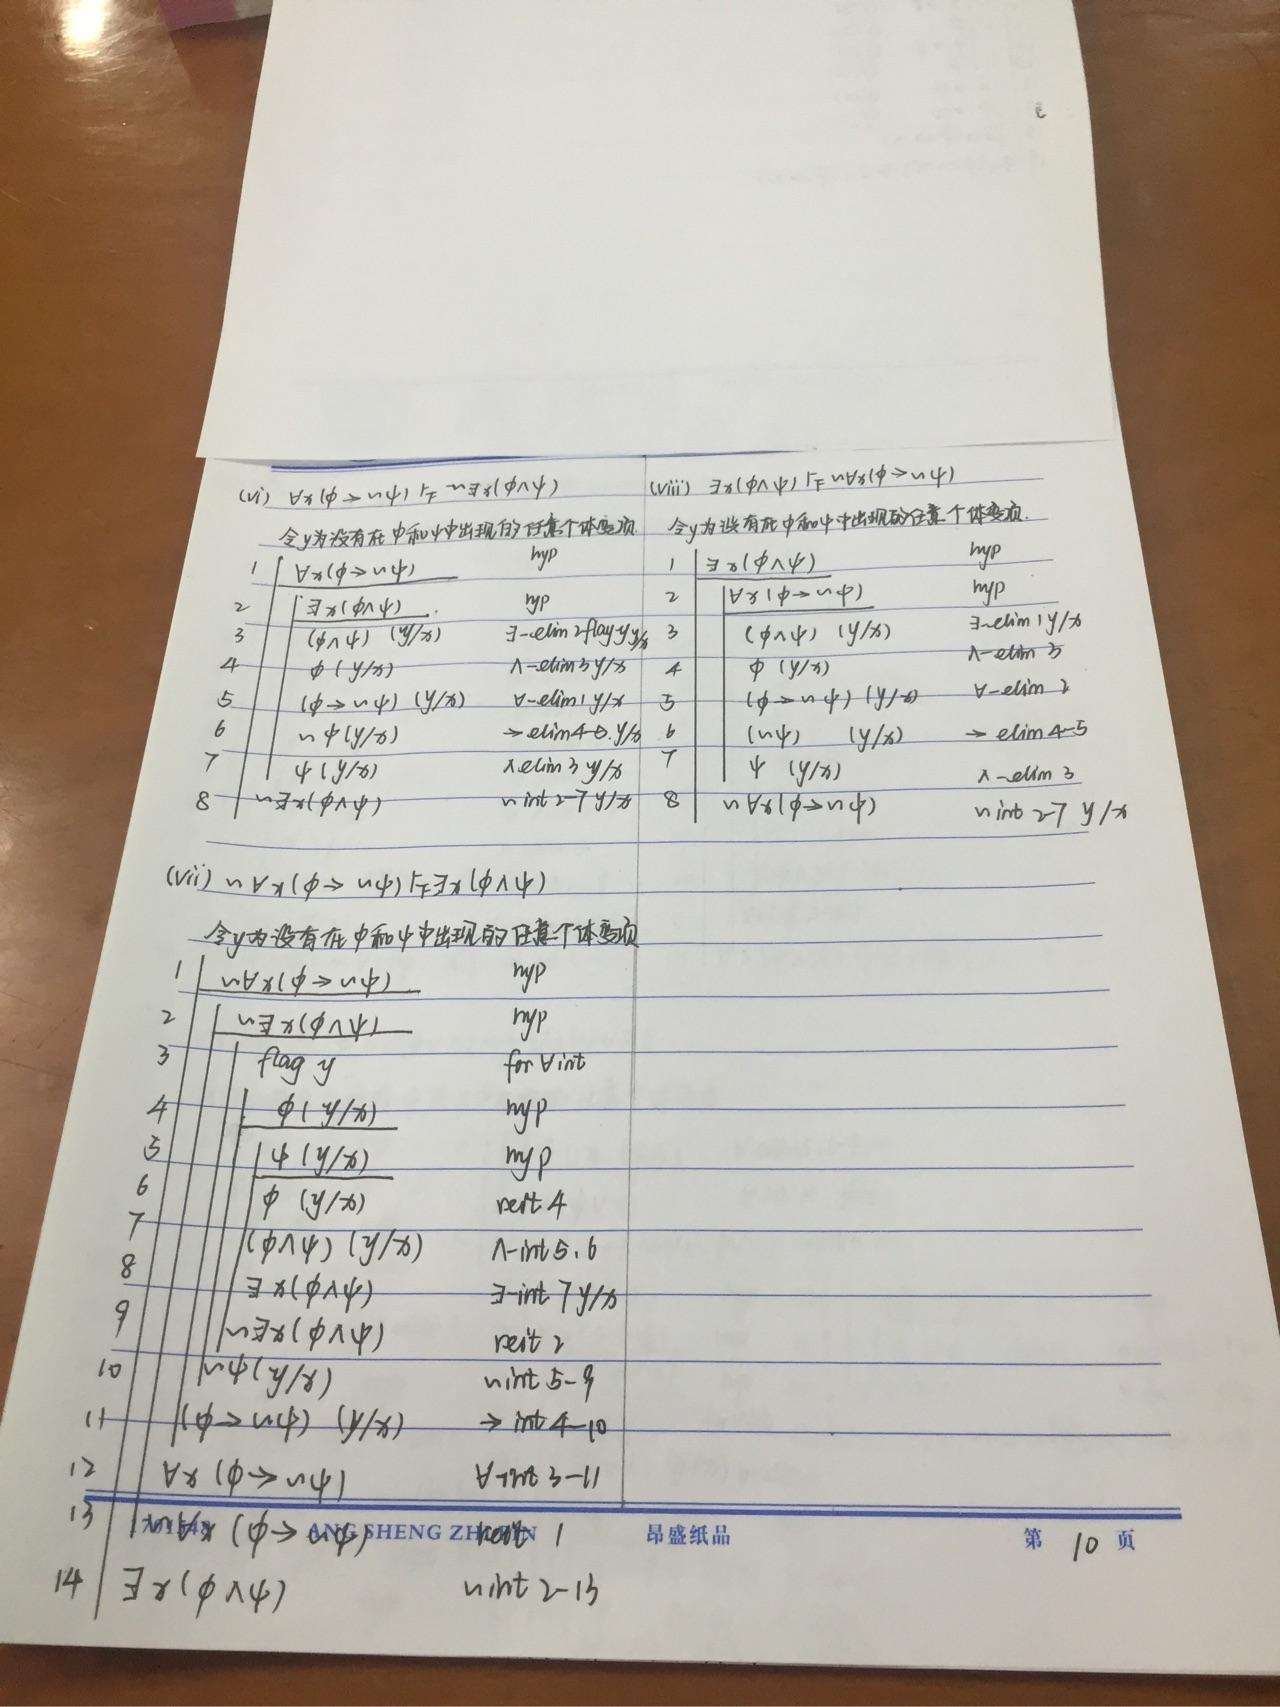 (vi) ∀x(φ→~ψ) ⊢⊨ ~∃x(φ∧ψ)
令y为没有在φ和ψ中出现的任意个体变项
1 ∀x(φ→~ψ) hyp
2 ∃x(φ∧ψ) hyp
3 (φ∧ψ) (y/x) ∃-elim 2 flag y y/x
4 φ(y/x) ∧-elim 3 y/x
5 (φ→~ψ) (y/x) ∀-elim 1 y/x
6 ~ψ(y/x) → elim 4-5. y/x
7 ψ(y/x) ∧elim 3 y/x
8 ~∃x(φ∧ψ) ~int 2-7 y/x
(viii) ∃x(φ∧ψ) ⊢⊨ ~∀x(φ→~ψ)
令y为没有在φ和ψ中出现的任意个体变项.
1 ∃x(φ∧ψ) hyp
2 ∀x(φ→~ψ) hyp
3 (φ∧ψ) (y/x) ∃-elim 1 y/x
4 φ (y/x) ∧-elim 3
5 (φ→~ψ) (y/x) ∀-elim 2
6 (~ψ) (y/x) → elim 4-5
7 ψ (y/x) ∧-elim 3
8 ~∀x(φ→~ψ) ~int 2-7 y/x
(vii) ~∀x(φ→~ψ) ⊢⊨ ∃x(φ∧ψ)
令y为没有在φ和ψ中出现的任意个体变项
1 ~∀x(φ→~ψ) hyp
2 ~∃x(φ∧ψ) hyp
3 flag y for ∀int
4 φ(y/x) hyp
5 ψ(y/x) hyp
6 φ (y/x) reit 4
7 (φ∧ψ) (y/x) ∧-int 5.6
8 ∃x(φ∧ψ) ∃-int 7 y/x
9 ~∃x(φ∧ψ) reit 2
10 ~ψ(y/x) ~int 5-9
11 (φ→~ψ) (y/x) → int 4-10
12 ∀x(φ→~ψ) ∀-int 3-11
13 ~∀x(φ→~ψ) reit 1
昂盛纸品 第 10 页
14 ∃x(φ∧ψ) ~int 2-13